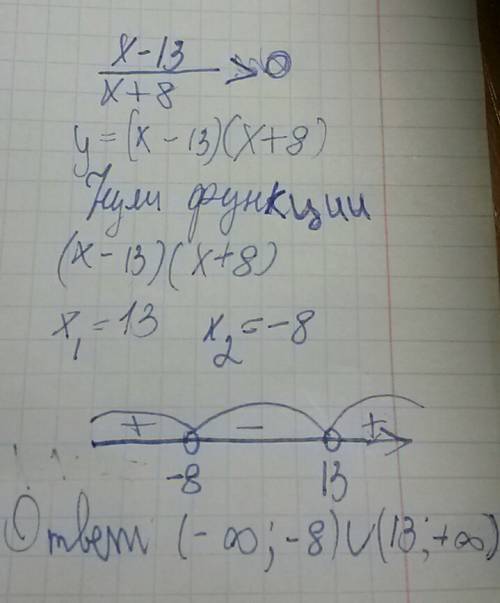 x-13
x+8 > 0
y=(x-13)(x+8)
Нули функции
(x-13)(x+8)
x₁=13 x₂=-8
+ - +
-8 13
Ответ (-∞;-8)∪(13;+∞)